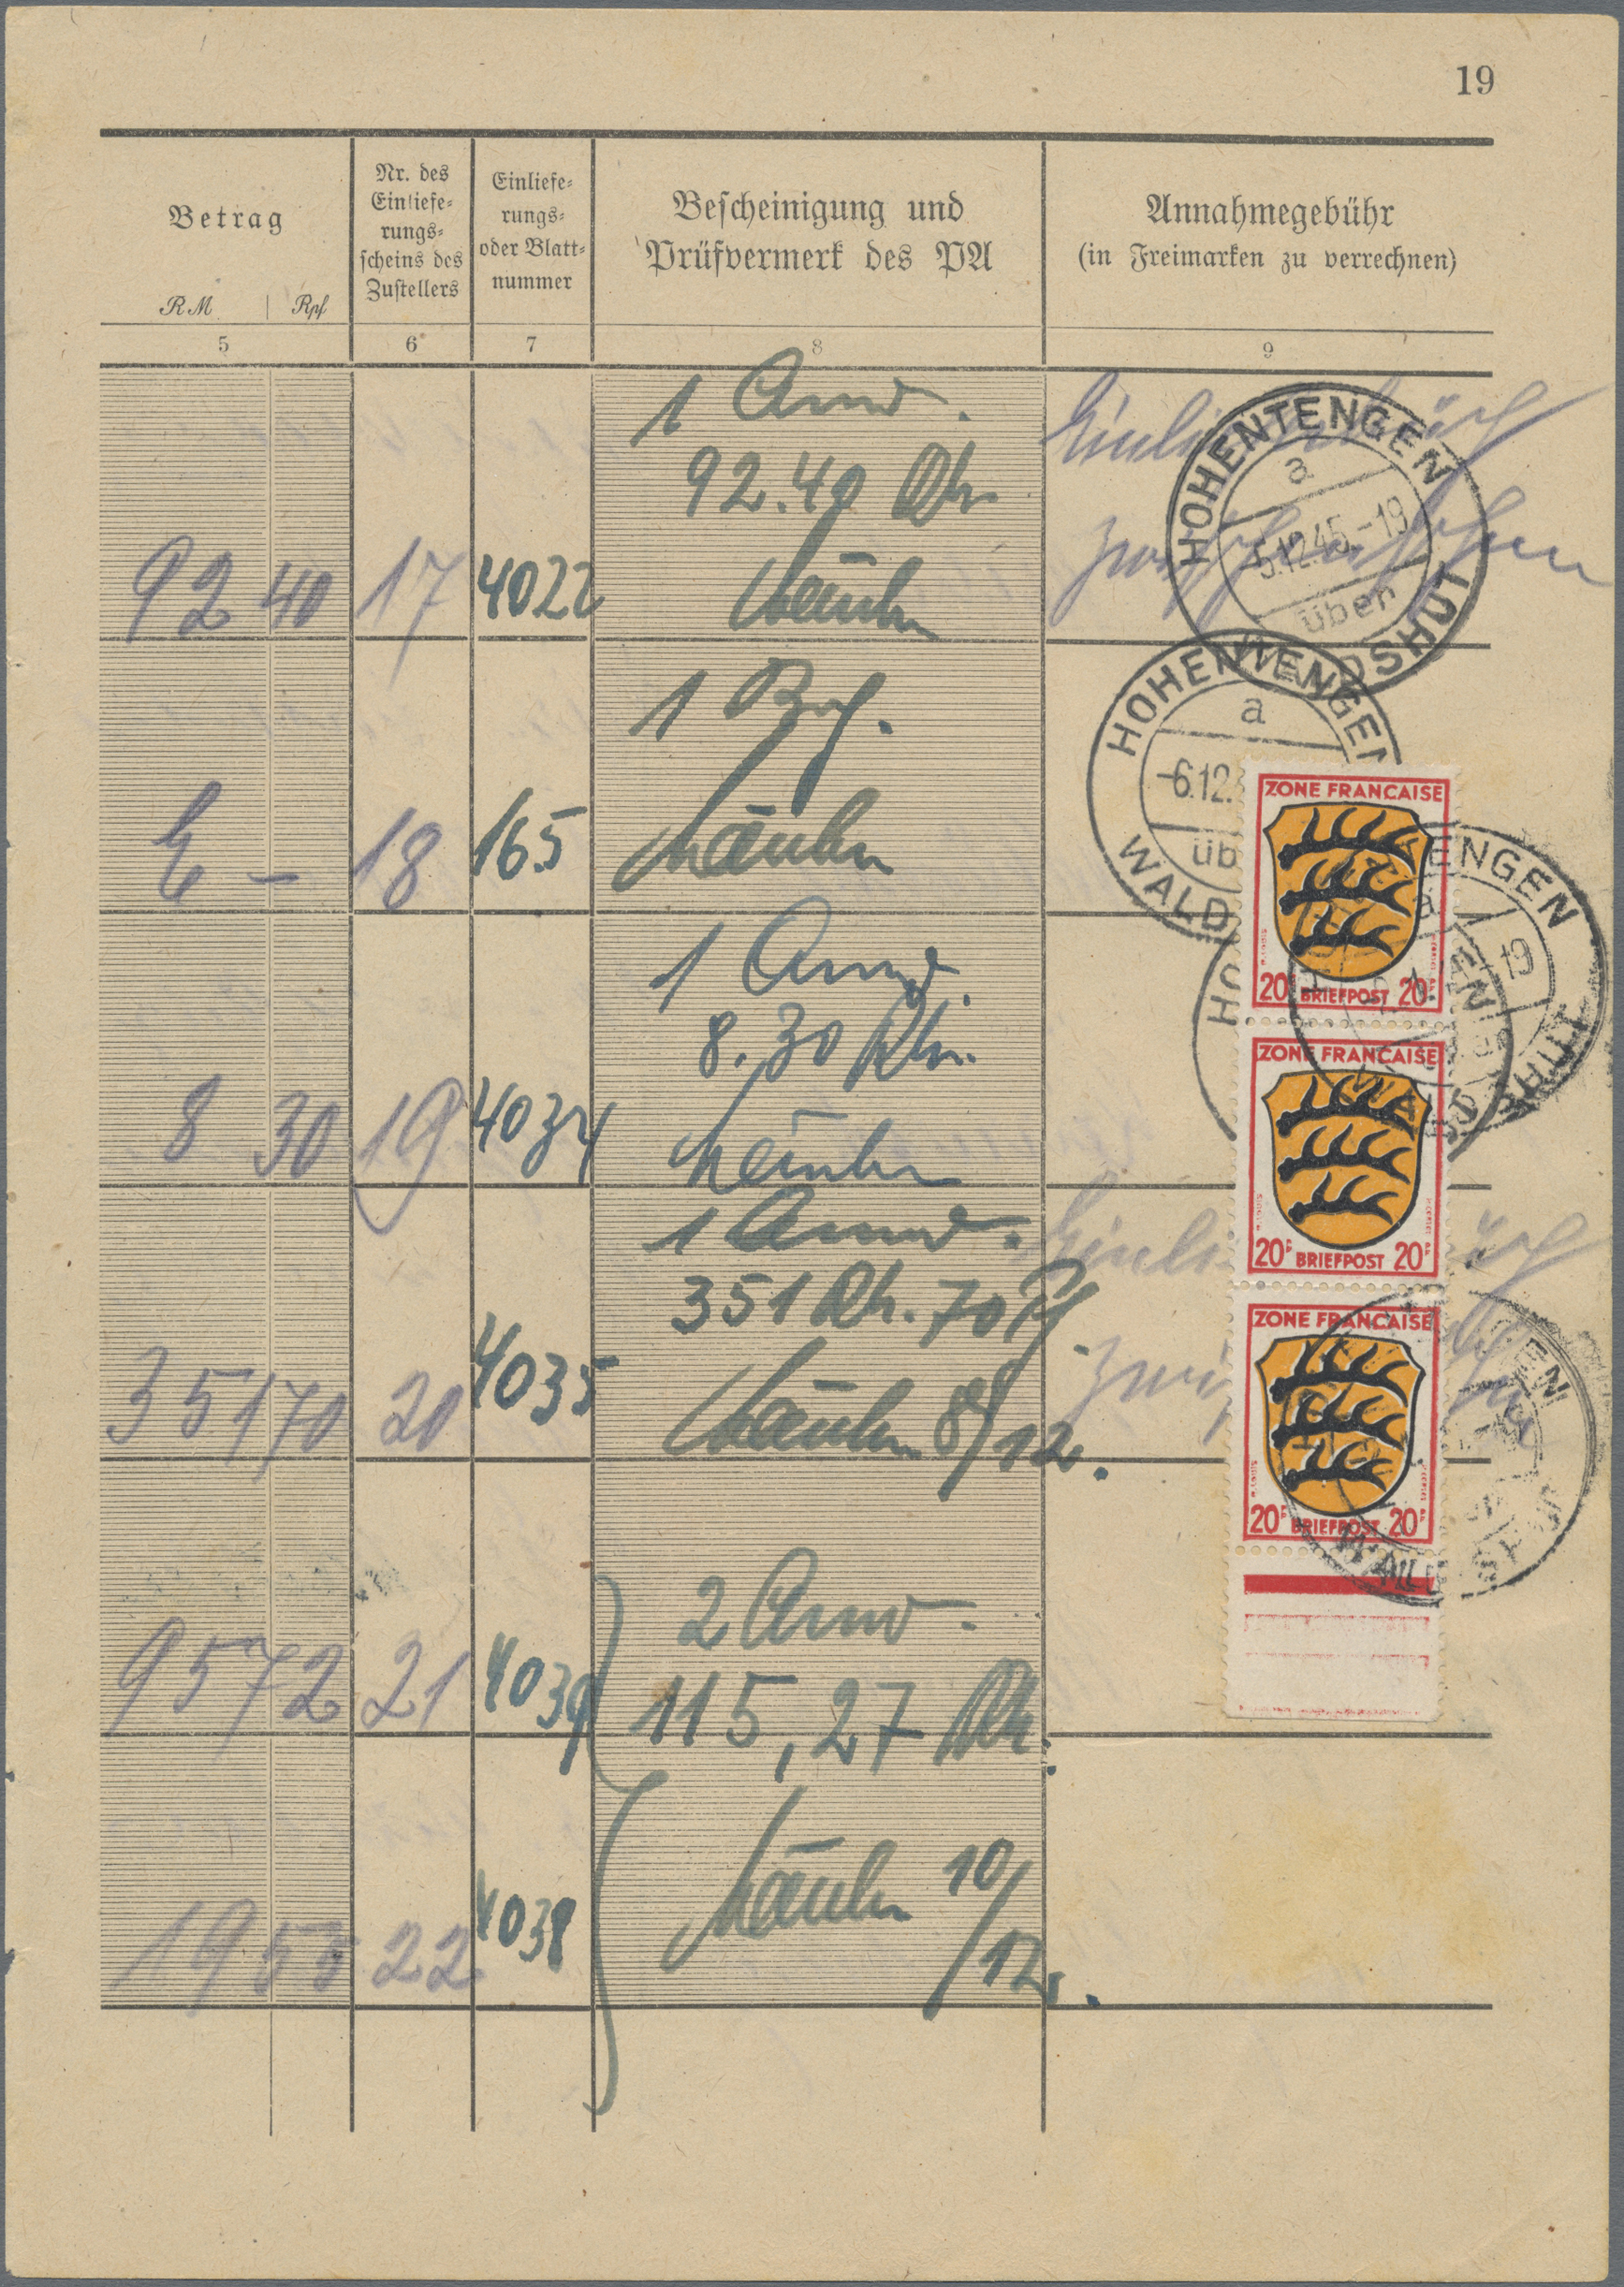 19
Betrag
RM Rpf
Nr. des
Einliefe-
rungs-
scheins des
Zustellers
Einliefe-
rungs-
oder Blatt-
nummer
Bescheinigung und
Prüfvermerk des PA
Annahmegebühr
(in Freimarken zu verrechnen)
5 6 7 8 9
1 Anw.
92.40 Rm
92 40 17 4022
HOHENTENGEN
a
5.12.45.-19
über
WALDSHUT
1
E – 18 165
HOHENTENGEN
a
-6.12.
üb
WALD
1 Anw.
8.30 Rm.
8 30 19 4034
ZONE FRANCAISE
20F BRIEFPOST 20F
ENGEN
a
19
1 Anw.
351 Rm. 70 Pf.
351 70 20 4035
8/12.
ZONE FRANCAISE
20F BRIEFPOST 20F
ZONE FRANCAISE
20F BRIEFPOST 20F
2 Anw.
115,27 Rm.
95 72 21 4039
10/12.
19 55 22 4038